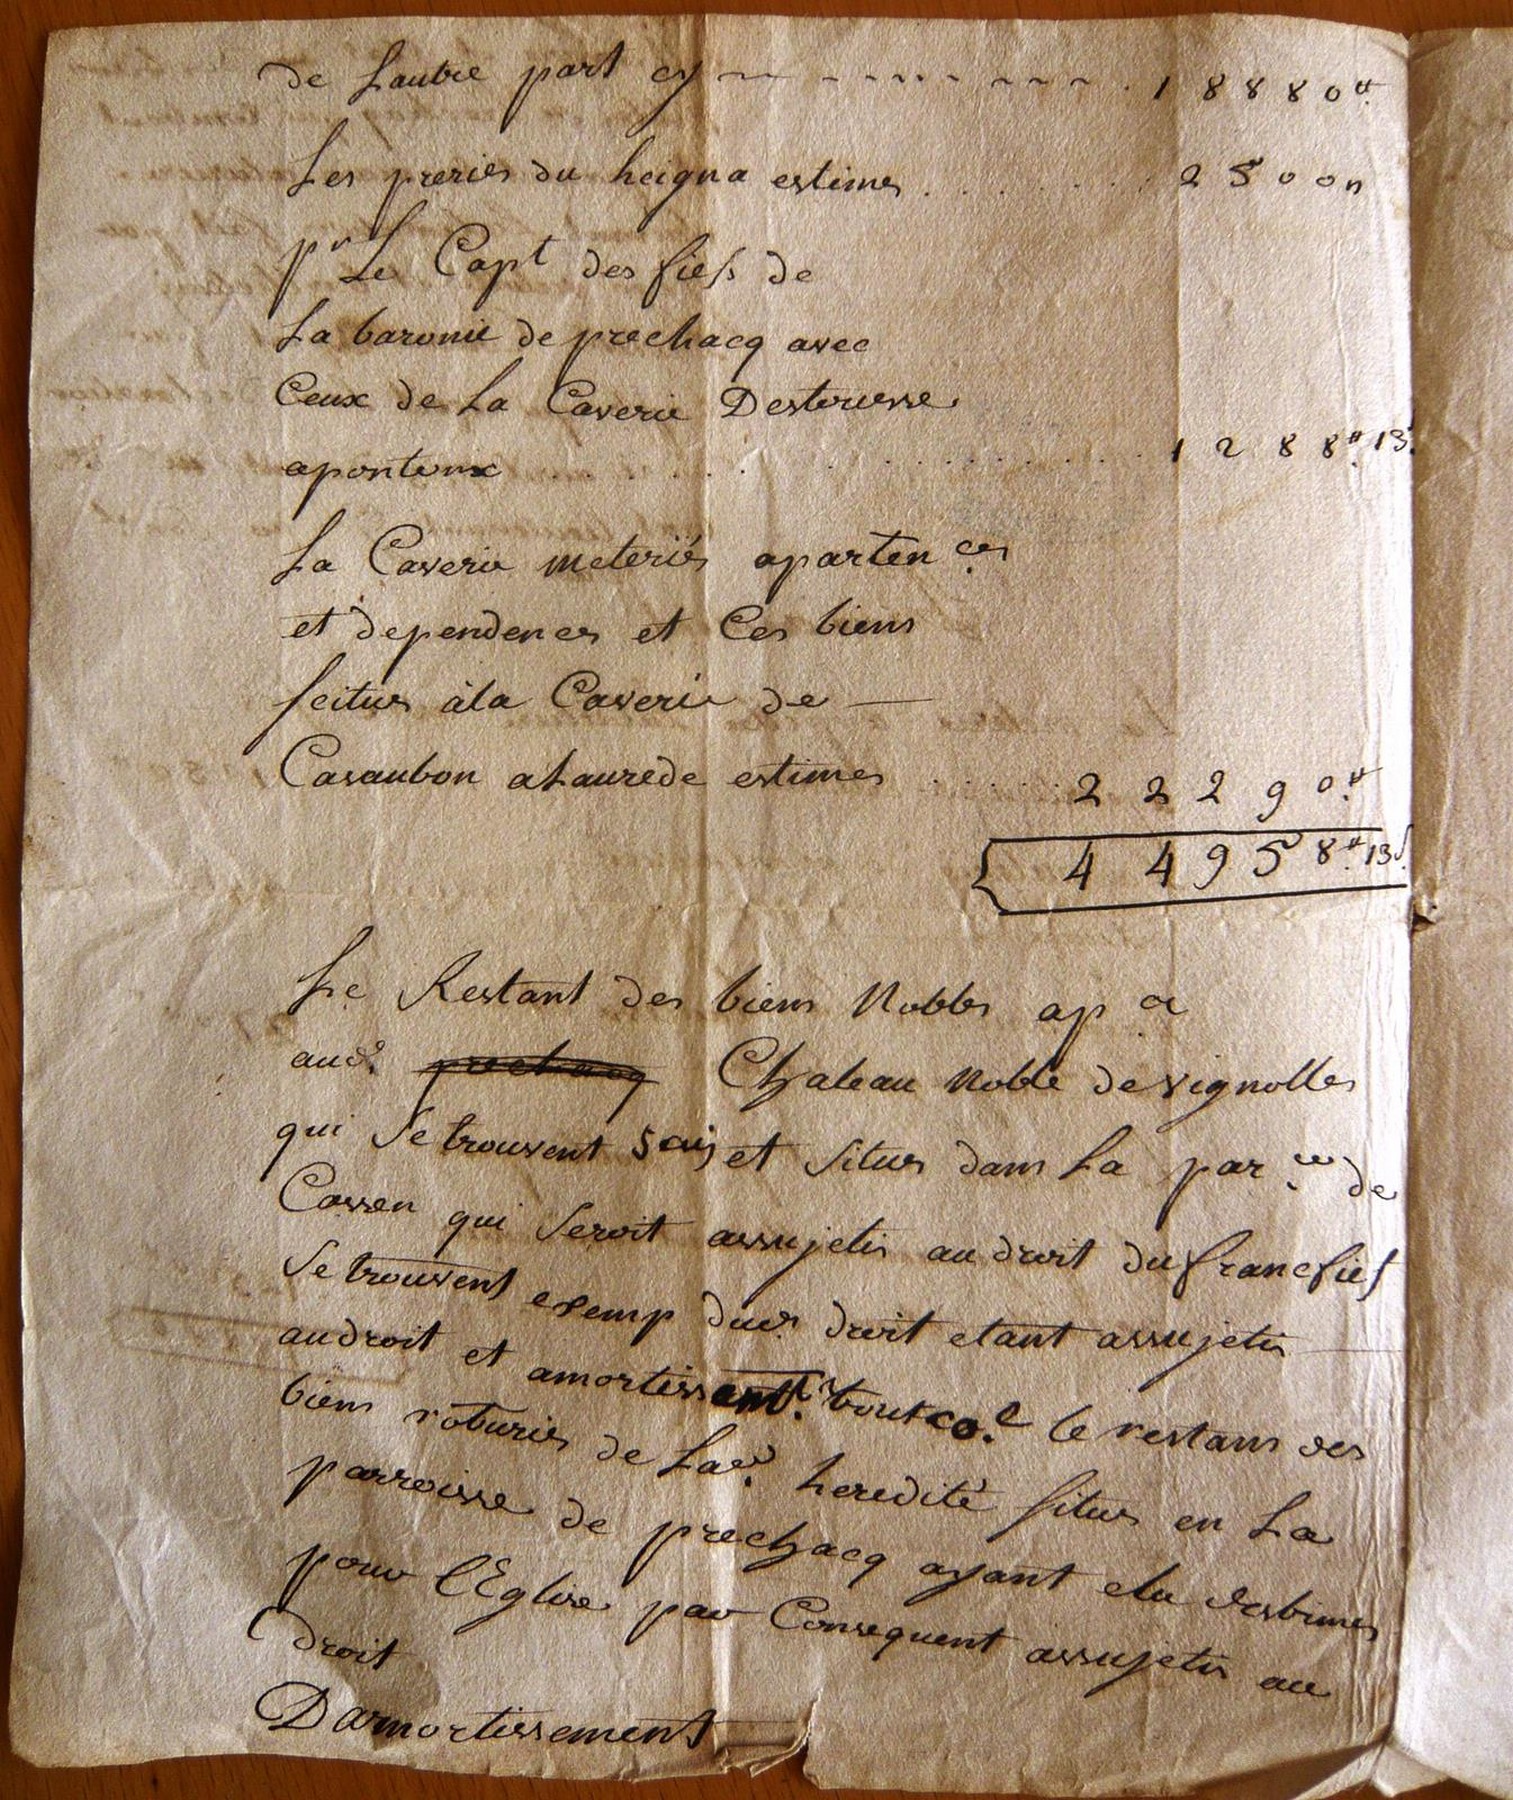 de Lautre part cy 18880ᵗᵗ
Les preries du heigna estimes 2500 ᵗᵗ
pʳ Le Capᵗ des fiefs de
La baronie de prechacq avec
Ceux de La Caverie Destouesse
apontonx 1288ᵗᵗ 13ˢ
La Caverie meteries apartenᶜᵉˢ
et dependences et Ces biens
scitues àla Caverie de —
Casaubon aLaurede estimes 22290ᵗᵗ
44958ᵗᵗ 13ˢ
Le Restant des biens Nobles ap
aud. prechacq Chateau Noble de vignolles
qui Se trouvent et Situes dans La parˢˢᵉ de
Cassen qui Seroit assujetis au droit du franc fief
Se trouvent exemp dud. droit etant assujetis
audroit et amortissemᵗ. tout le restans des
biens roturies de Lad. heredité situes en La
parroisse de prechacq ayant ela destines
pour lEglise par Consequent assujetis au
droit
Damortissement